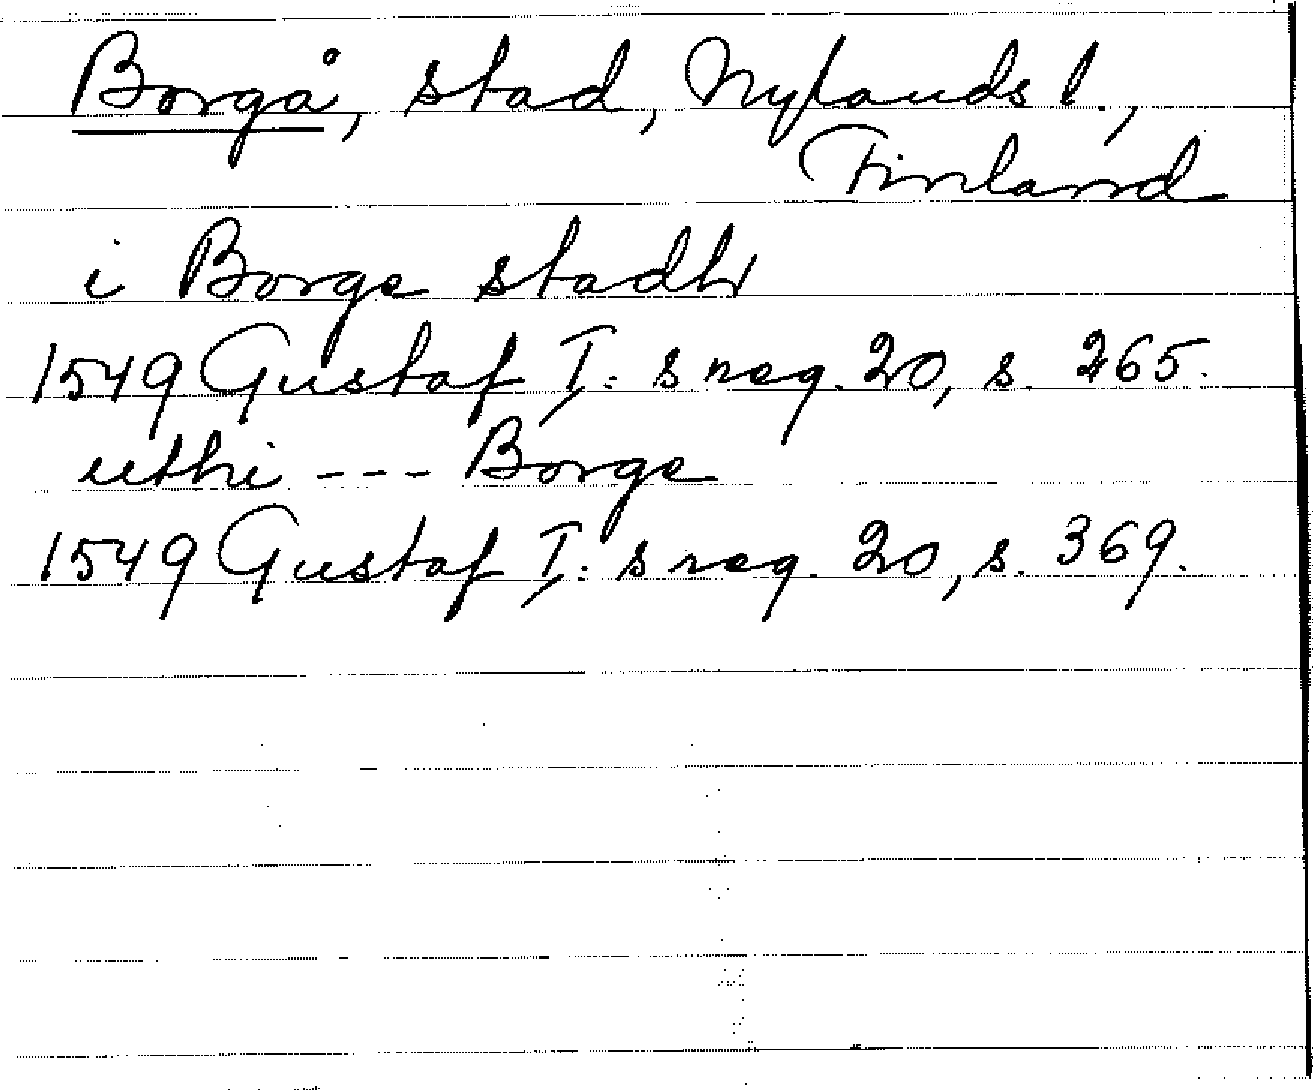 Borgå, stad, Nylands l.,
Finland
i Borge stadh
1549 Gustaf I:s reg. 20, s. 265.
uthi --- Borge
1549 Gustaf I:s reg. 20, s. 369.